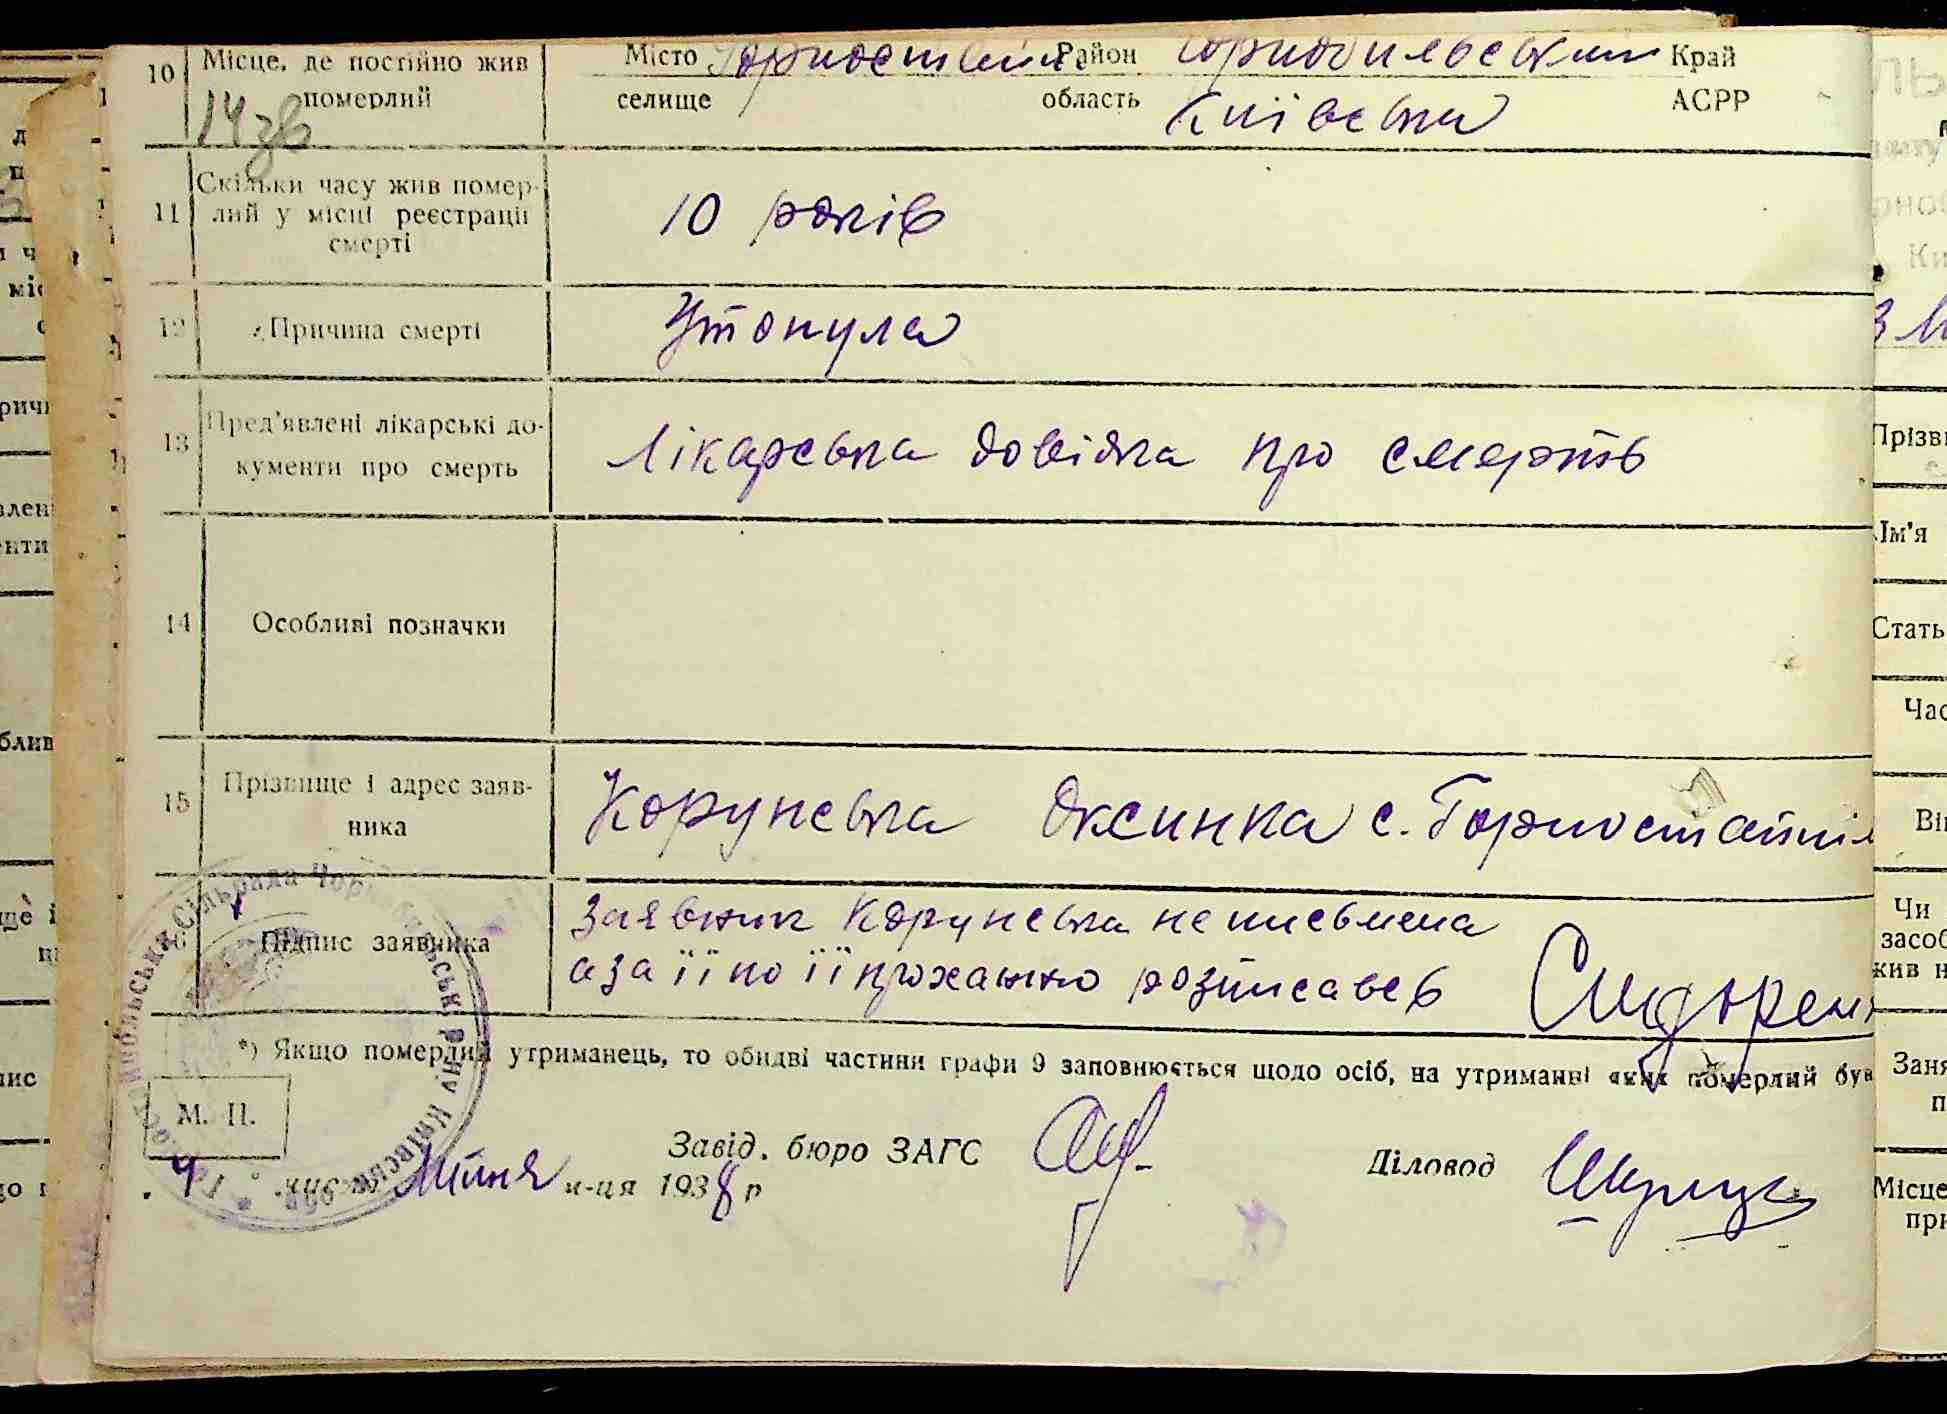 10 Місце, де постійно жив померлий
14 зв
Місто селище Горностайпіль Район Чорнобильський Край
область Київська АСРР
11 Скільки часу жив помер-
лий у місці реєстрації
смерті
10 років
12 Причина смерті
Утонула
13 Пред'явлені лікарські до-
кументи про смерть
Лікарська довідка про смерть
14 Особливі позначки
15 Прізвище і адрес заяв-
ника
Корунська Оксинка с. Горностайпіль
16 Підпис заявника
Заявник Корунська неписьмена
а за її по її проханню розписавсь Сидорен
*) Якщо померлий утриманець, то обидві частини графи 9 заповнюється щодо осіб, на утриманні яких померлий був
М. П.
Завід. бюро ЗАГС
Діловод
4 числа Липня м-ця 1938 р
Прізв
Ім'я
Стать
Час
Вік
Чи
засоб
жив н
Заня
п
Місце
при